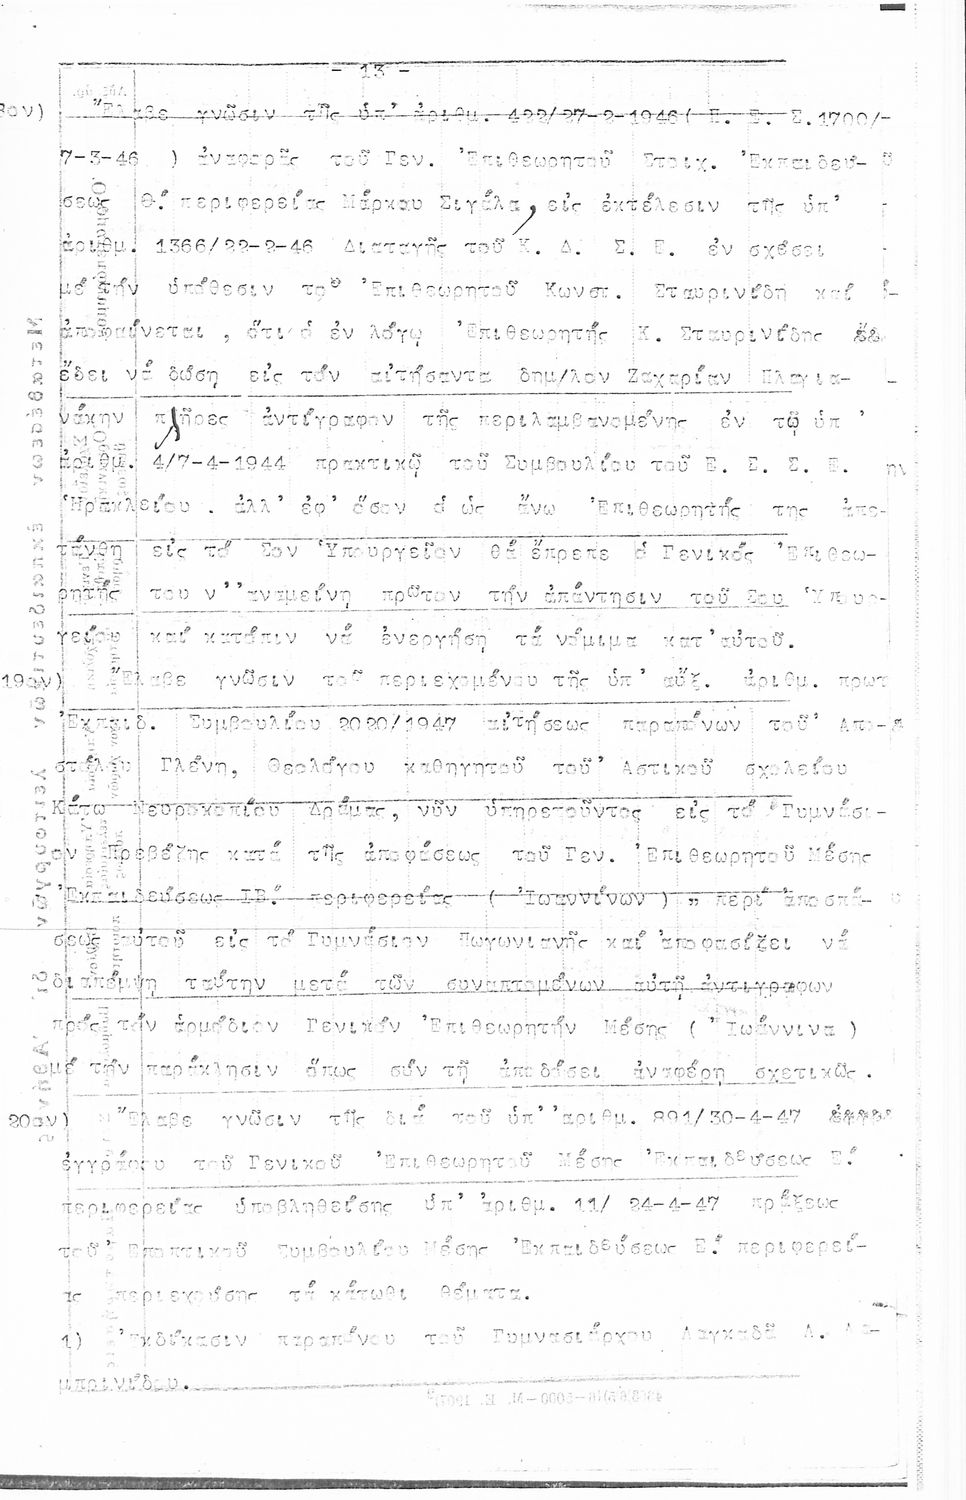 - 13 -
8ον) Ἔλαβε γνῶσιν τῆς ὑπ' ἀριθμ. 422/27-2-1946( Ε. Ε. Σ.1700/-
7-3-46 ) ἀναφορᾶς τοῦ Γεν. Ἐπιθεωρητοῦ Στοιχ. Ἐκπαιδεύ-
σεως Θ! περιφερείας Μάρκου Σιγάλα, εἰς ἐκτέλεσιν τῆς ὑπ'
ἀριθμ. 1366/22-2-46 Διαταγῆς τοῦ Κ. Δ. Σ. Ε. ἐν σχέσει
μέ τήν ὑπόθεσιν τοῦ Ἐπιθεωρητοῦ Κωνστ. Σταυρινίδη καί
ἀποφαίνεται , ὅτι ὁ ἐν λόγῳ Ἐπιθεωρητής Κ. Σταυρινίδης
ἔδει νά δώσῃ εἰς τόν αἰτήσαντα δημ/λον Ζαχαρίαν Πλαγια-
νάκην πλῆρες ἀντίγραφον τῆς περιλαμβανομένης ἐν τῷ ὑπ '
ἀριθμ. 4/7-4-1944 πρακτικῷ τοῦ Συμβουλίου τοῦ Ε. Σ. Σ. Ε.
Ἡρακλείου . ἀλλ' ἐφ' ὅσον ὁ ὡς ἄνω Ἐπιθεωρητής της ἀπε-
τάνθη εἰς τό Σον Ὑπουργεῖον θά ἔπρεπε ὁ Γενικός Ἐπιθεω-
ρητής του ν''ἀναμείνῃ πρῶτον τήν ἀπάντησιν τοῦ Σου Ὑπουρ-
γείου καί κατόπιν νά ἐνεργήσῃ τά νόμιμα κατ'αὐτοῦ.
19ον) Ἔλαβε γνῶσιν τοῦ περιεχομένου τῆς ὑπ' αὔξ. ἀριθμ. πρωτ
Ἐκπαιδ. Συμβουλίου 2020/1947 αἰτήσεως παραπόνων τοῦ' Απο-
στόλου Γλένη, Θεολόγου καθηγητοῦ τοῦ' Αστικοῦ σχολείου
Κάτω Νευροκοπίου Δράμας, νῦν ὑπηρετοῦντος εἰς τό Γυμνάσι-
ον Πρεβέζης κατά τῆς ἀποφάσεως τοῦ Γεν. Ἐπιθεωρητοῦ Μέσης
Ἐκπαιδεύσεως ΙΒ! περιφερείας ( Ἰωαννίνων ) " περί ἀποσπά-
σεως αὐτοῦ εἰς τό Γυμνάσιον Πωγωνιανῆς καί ἀποφασίζει νά
διαπέμψῃ ταύτην μετά τῶν συναπτομένων αὐτῇ ἀντιγραφων
πρός τόν ἁρμόδιον Γενικόν Ἐπιθεωρητήν Μέσης ( Ἰωάννινα )
μέ τήν παράκλησιν ὅπως σύν τῇ ἀποδόσει ἀναφέρῃ σχετικῶς .
20όν) Ἔλαβε γνῶσιν τῆς διά τοῦ ὑπ''αριθμ. 891/30-4-47
ἐγγράφου τοῦ Γενικοῦ Ἐπιθεωρητοῦ Μέσης Ἐκπαιδεύσεως Ε!
περιφερείας ὑποβληθείσης ὑπ' ἀριθμ. 11/ 24-4-47 πράξεως
τοῦ Εποπτικοῦ Συμβουλίου Μέσης Ἐκπαιδεύσεως Ε! περιφερεί-
ας περιεχούσης τά κάτωθι θέματα.
1) Ἐκδίκασιν παραπόνου τοῦ Γυμνασιάρχου Λαγκαδᾶ Α. Λα-
μπρινίδου.